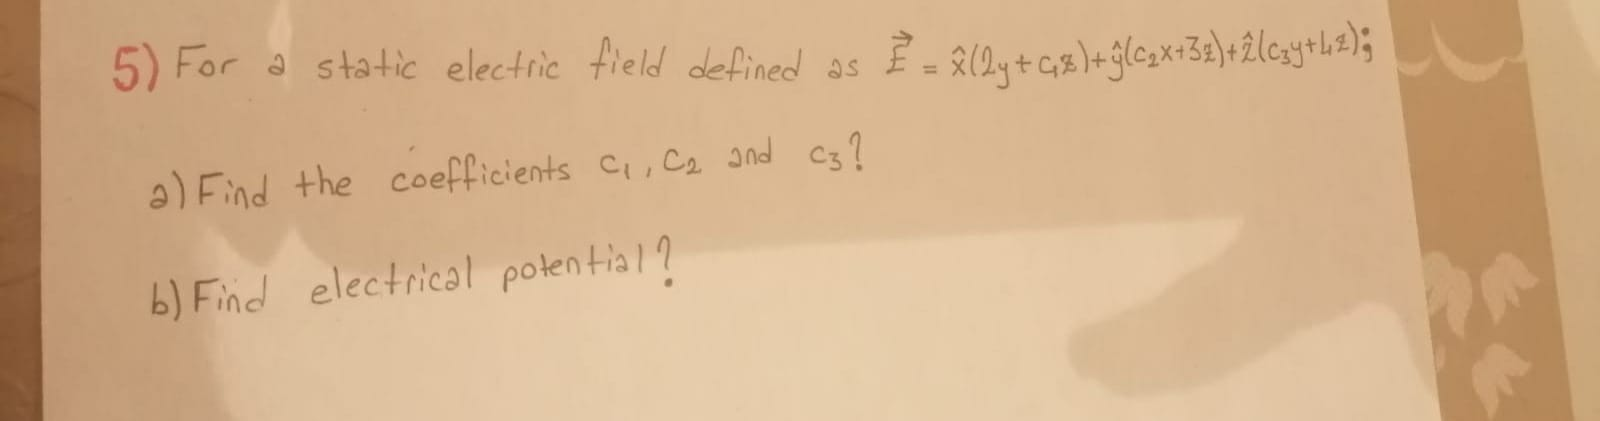 5) For a static electric field defined as E⃗ = x̂(2y+c₁z)+ŷ(c₂x+3z)+ẑ(c₃y+4z);
a) Find the coefficients c₁, c₂ and c₃?
b) Find electrical potential?